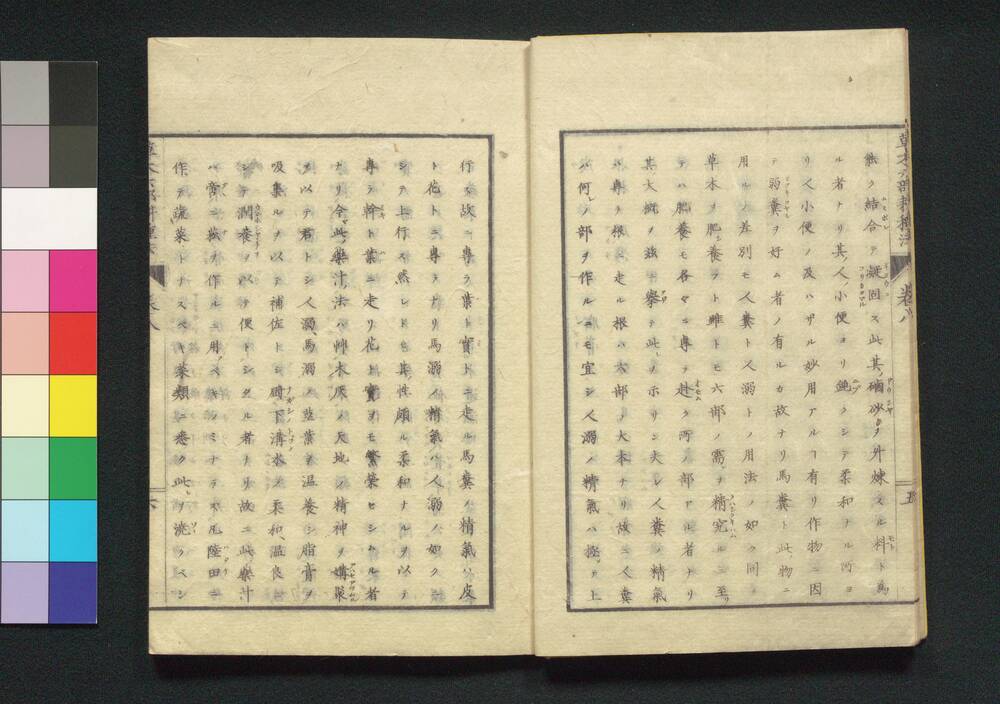 能ク結合シテ凝固ス此其硇砂ヲ外煉スル料ト爲
ル者ナリ其人ノ小便ヨリ鈍クシテ柔和ナル所ヨ
リ人小便ノ及ハザル妙用アルヿ有リ作物ニ因
テ弱糞ヲ好ム者ノ有ルカ故ナリ馬糞ト此物ニ
用ルノ差別モ人糞ト人溺トノ用法ノ如ク同ク
草木ヲ肥養ヲト雖トモ六部ノ需ヲ精究ルニ至リ
テハ肥養モ各々ニ專ラ赴ク所ノ部アル者ナリ
其大概ヲ玆ニ擧テ此ヲ示サン夫レ人糞ノ精氣
ハ專ラ根ニ走ル根ハ六部ノ大本ナリ故ニ人糞
ハ何レノ部ヲ作ルニモ宜シ人溺ノ精氣ハ極テ上
行ス故ニ專ラ葉ト實トニ走ル馬糞ノ精氣ハ皮
ト花トニ專ラナリ馬溺ノ精氣ハ人溺ノ如ク
シテ上行ス然レドモ其性頗ル柔和ナルヲ以テ
專ラ幹ト葉ニ走リ花ト實ヲモ繁榮セシムル者
ナリ今此藥汁法ハ艸木灰ノ天地ノ精神ヲ媾聚
ヲ以テ君トシ人溺馬溺ノ莖葉ヲ温養シ脂膏ヲ
吸集ルヲ以テ補佐トシ磧下溝水ノ柔和温良ニ
シテ潤養ヲ以テ便トシタル者ナリ故ニ此藥汁
ハ啻ニ菘ヲ作ルニ用ベキノミナラズ凡陸田ニ
作テ蔬菜トナスベキ菜類ニ悉ク此ヲ澆ラベシ